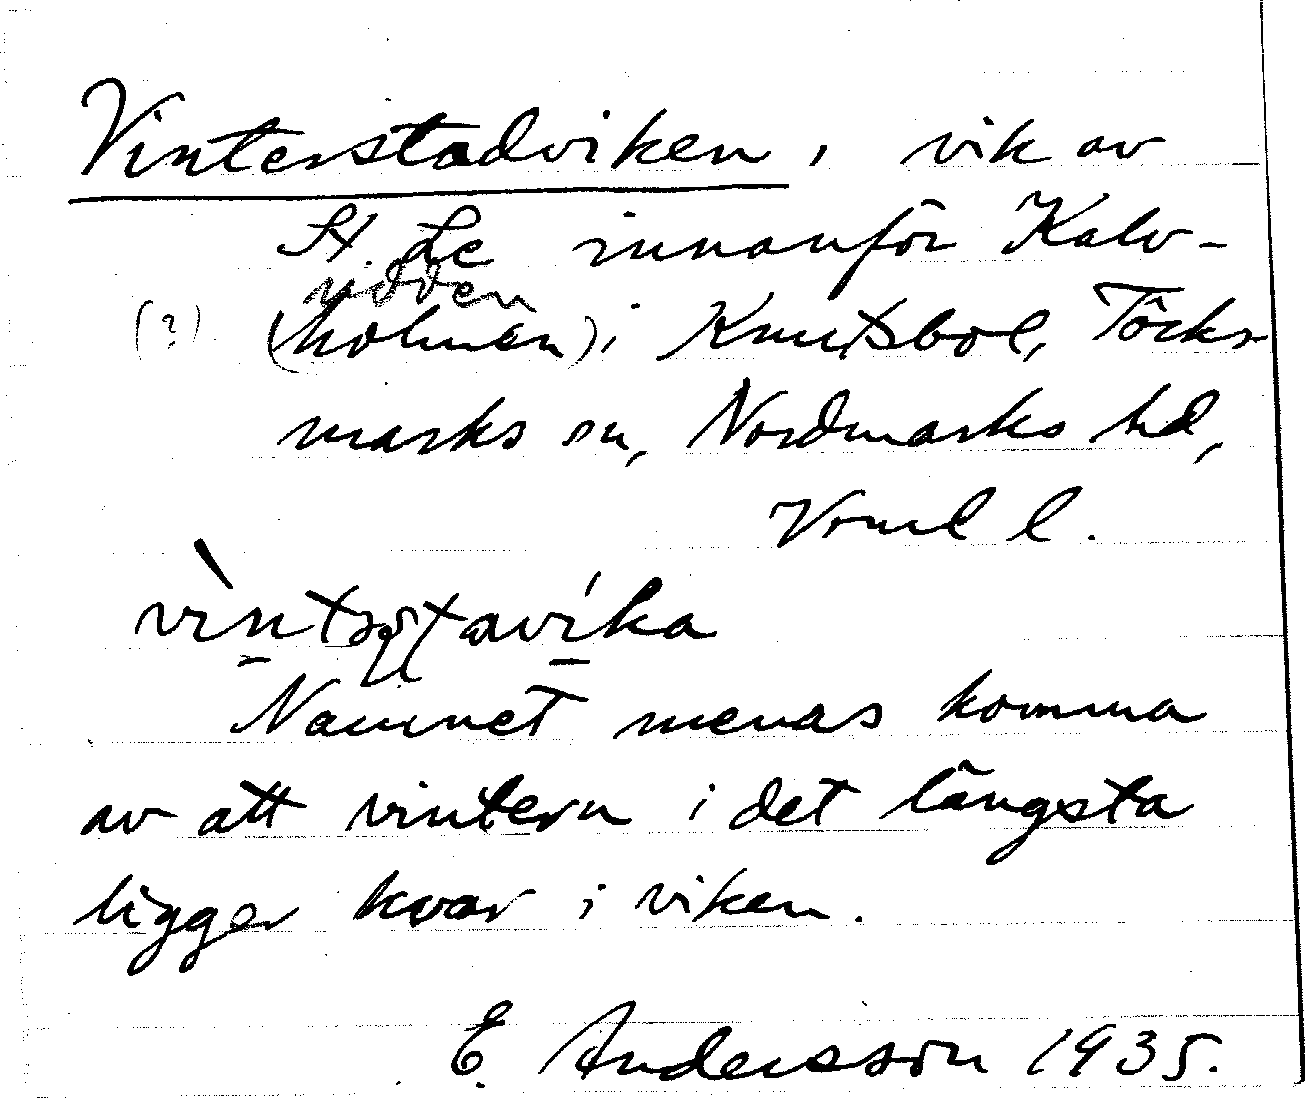 Vinterstadviken, vik av
St. Le innanför Kalv-
udden
(?) (holmen) i Knutsbol, Töcks-
marks sn, Nordmarks hd,
Vrml l.
Namnet menas komma
av att vintern i det längsta
ligger kvar i viken.
E. Andersson 1935.